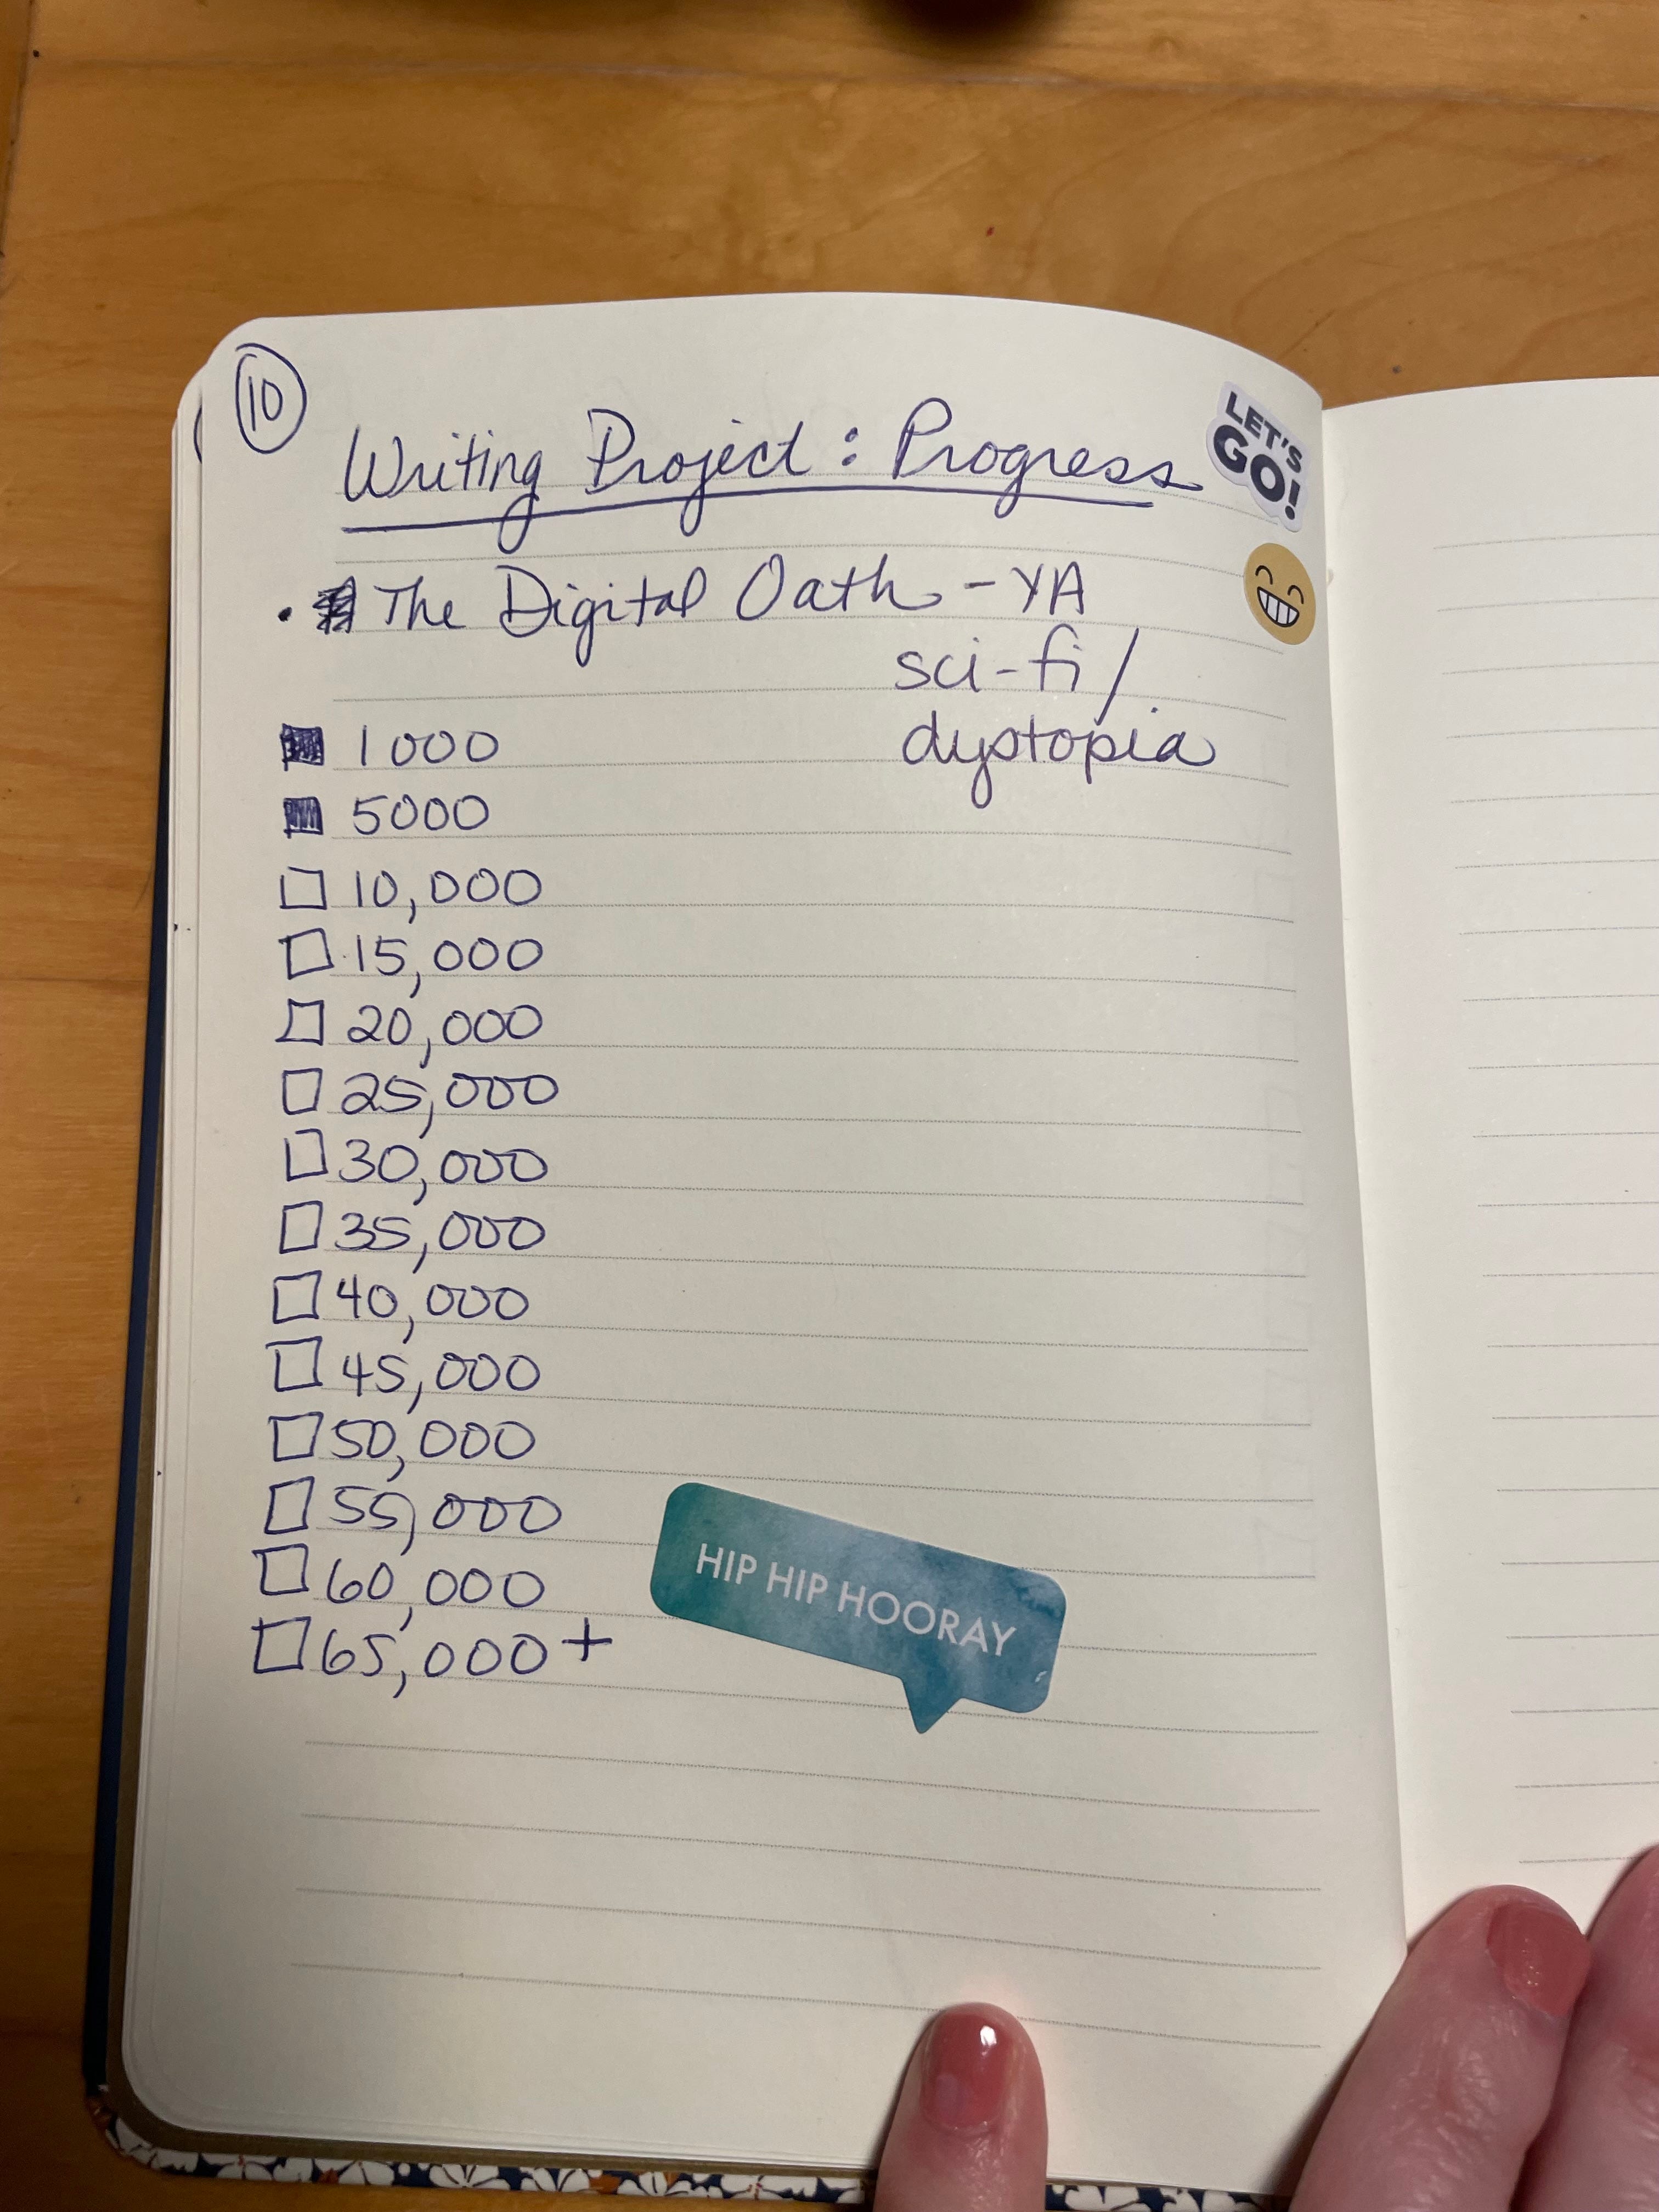 10
Writing Project: Progress
LET'S
GO!
• The Digital Oath - YA
sci-fi /
dystopia
1000
5000
10,000
15,000
20,000
25,000
30,000
35,000
40,000
45,000
50,000
55,000
60,000
65,000+
HIP HIP HOORAY